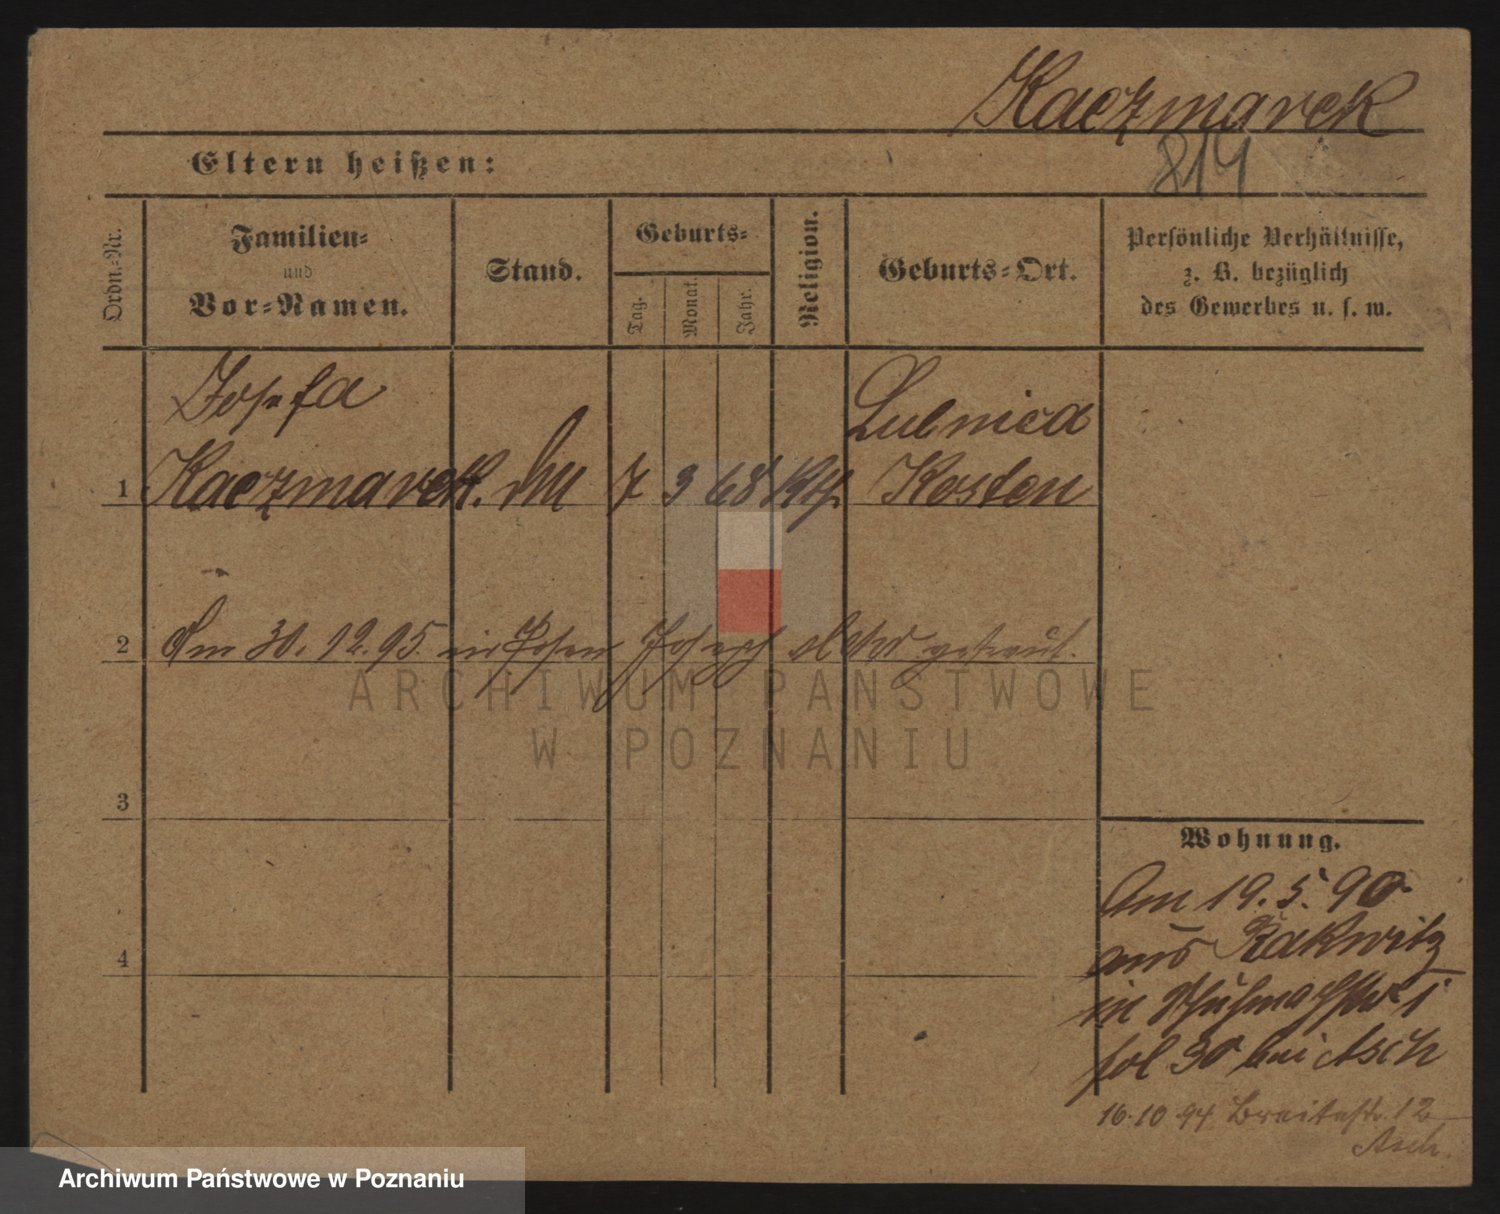 Kaczmarek
814
Eltern heißen:
Ordn.-Nr.
Familien- und Vor-Namen.
Stand.
Geburts-
Tag.
Monat.
Jahr.
Religion.
Geburts-Ort.
Persönliche Verhältnisse,
z. B. bezüglich
des Gewerbes u. s. w.
Josefa
Lubnica
1 Kaczmarek. 7 3 68 Kth. Kosten
2 Am 30. 12. 95. in Posen Joseph getraut.
ARCHIWUM PAŃSTWOWE
W POZNANIU
3
Wohnung.
Am 19. 5. 90
aus Rakwitz
4
in
fol 30 bei Asch
16.10.94. Breitestr. 12
Asch.
Archiwum Państwowe w Poznaniu